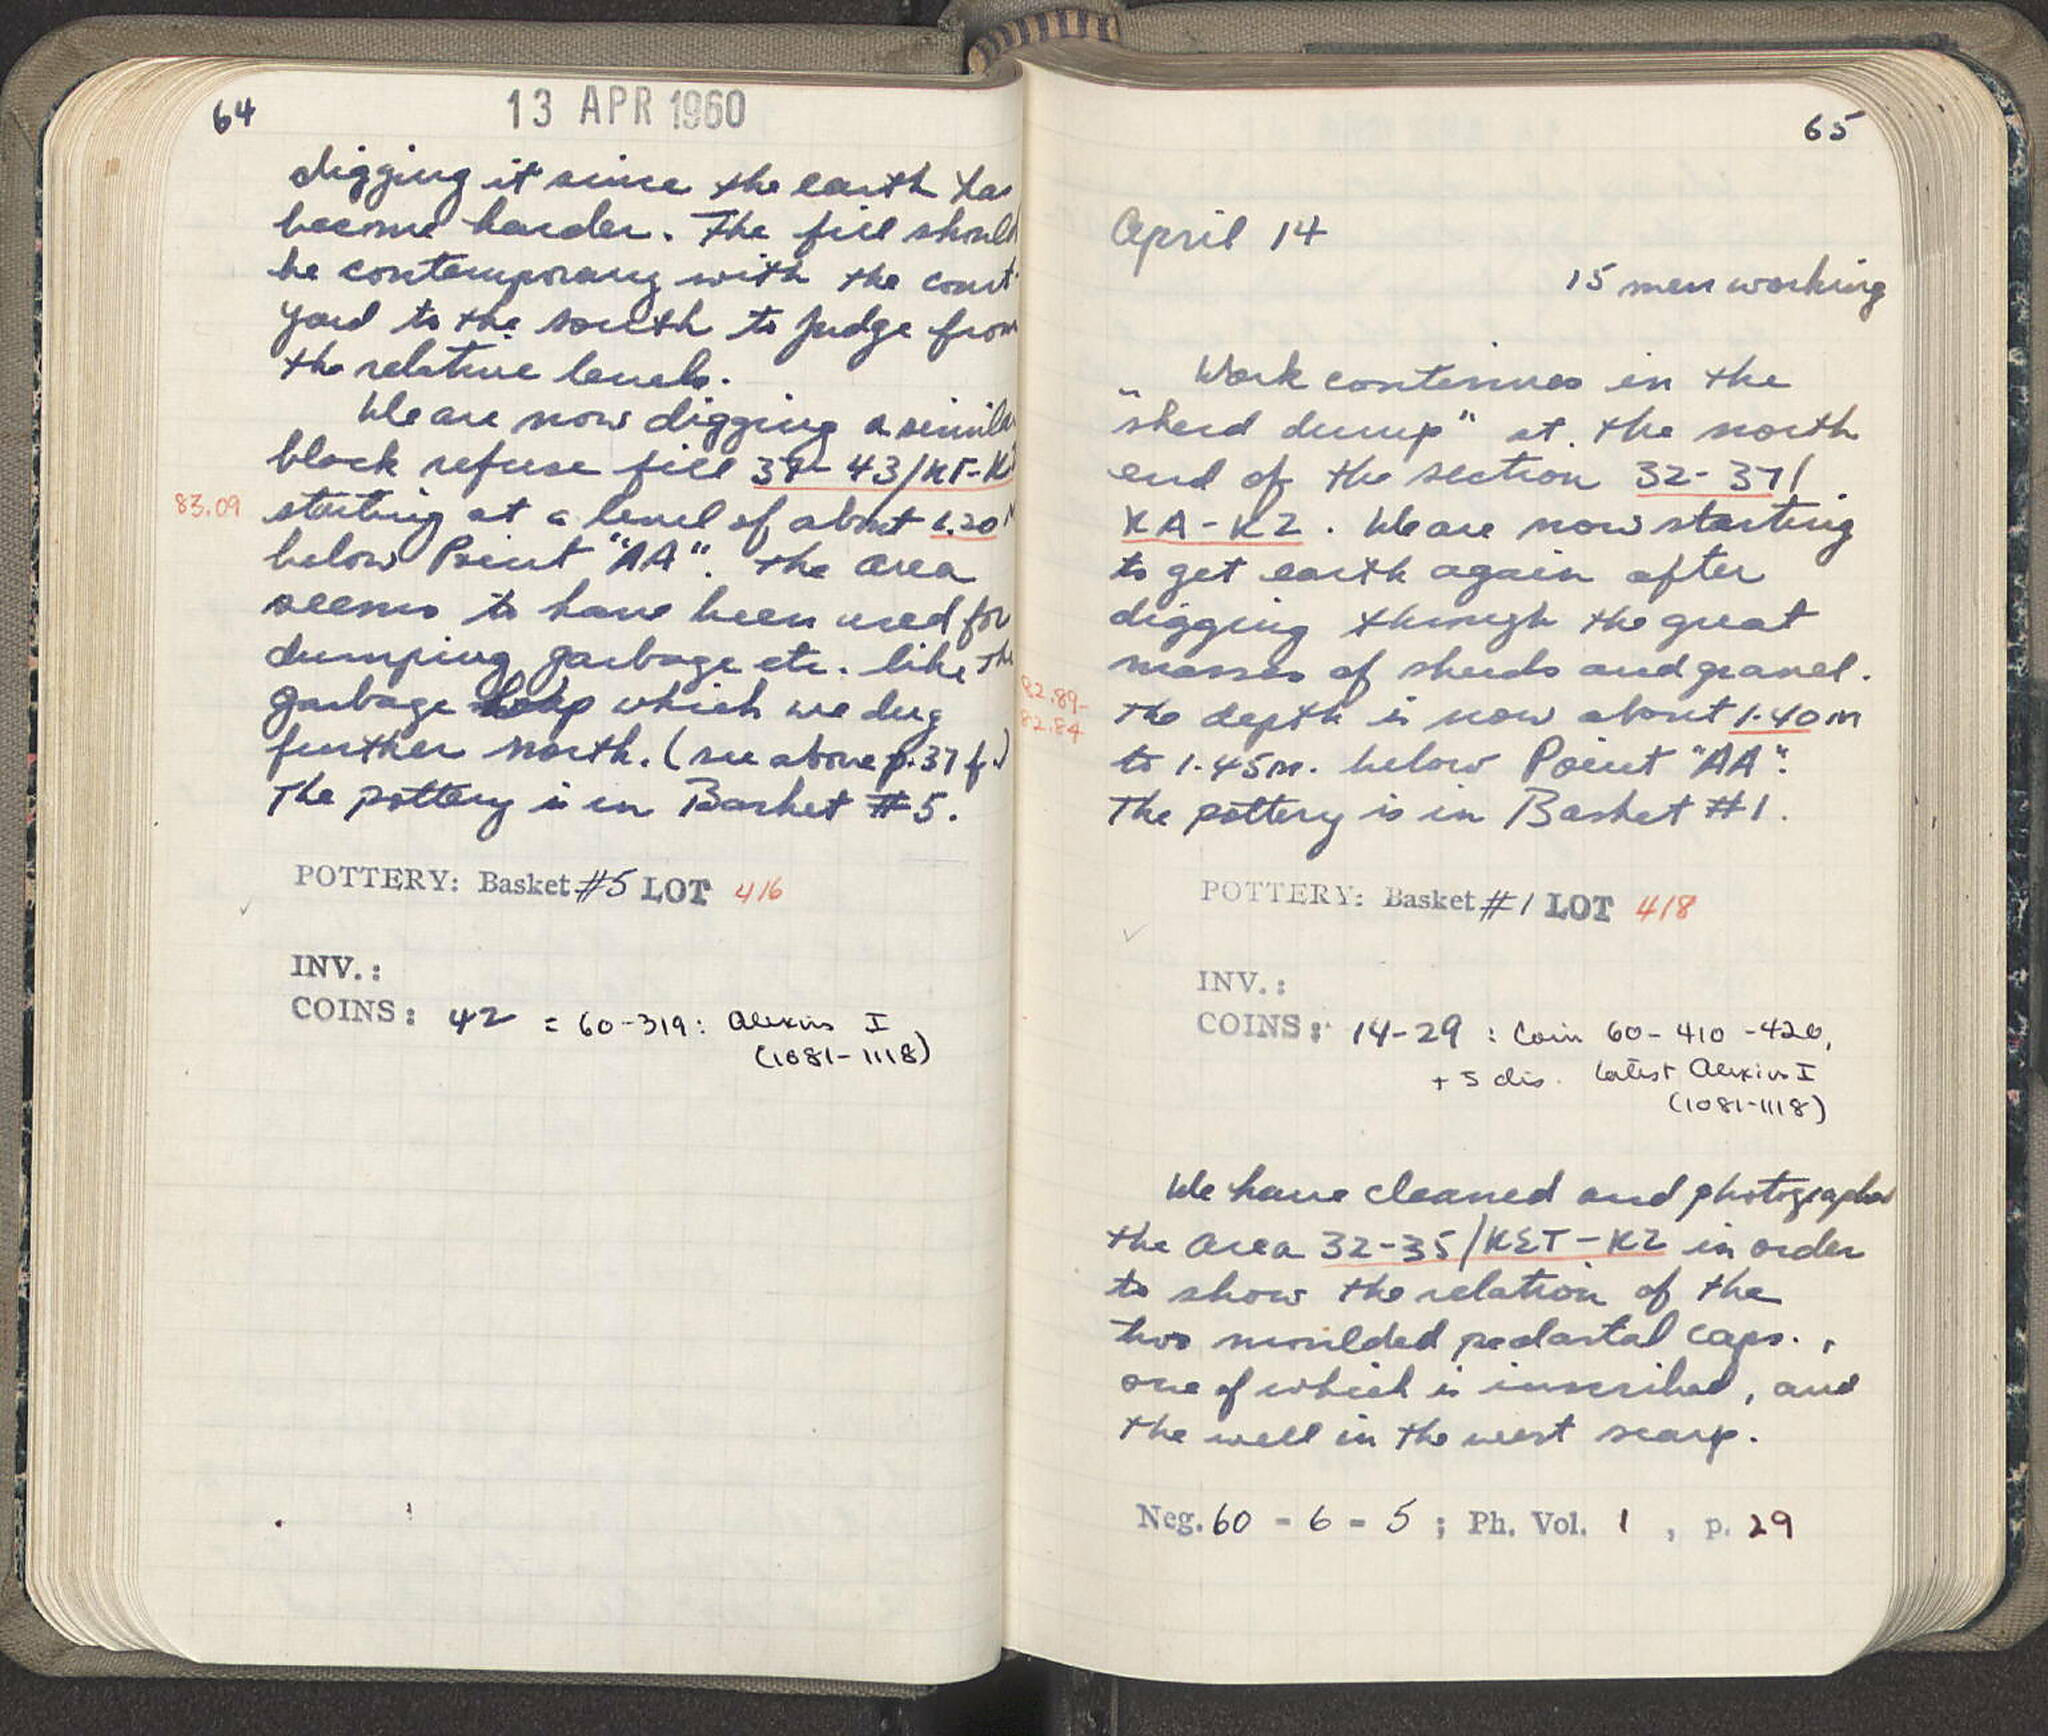 64
13 APR 1960
digging it since the earth has
become harder. The fill should
be contemporary with the court-
yard to the south to judge from
the relative levels.
We are now digging a similar
black refuse fill 39-43/
83.09
starting at a level of about 1.20 M
below Point "AA". The area
seems to have been used for
dumping garbage etc. like the
garbage heap which we dug
further north. (see above p. 37 f.)
The pottery is in Basket #5.
POTTERY: Basket #5 LOT 416
INV.:
COINS: 42 = 60-319: Alexius I
(1081-1118)
65
April 14
15 men working
Work continues in the
"sherd dump" at the north
end of the section 32-37/
KA-KZ. We are now starting
to get earth again after
digging through the great
masses of sherds and gravel.
82.89-
82.84
The depth is now about 1.40 m
to 1.45 m. below Point "AA".
The pottery is in Basket #1.
POTTERY: Basket #1 LOT 418
INV.:
COINS: 14-29 : Coin 60-410-420,
+ 5 dis. Latest Alexius I
(1081-1118)
We have cleaned and photographed
the area 32-35/KΣT-KZ in order
to show the relation of the
two moulded pedastal caps.,
one of which is inscribed, and
the well in the west scarp.
Neg. 60-6-5; Ph. Vol. 1, p. 29